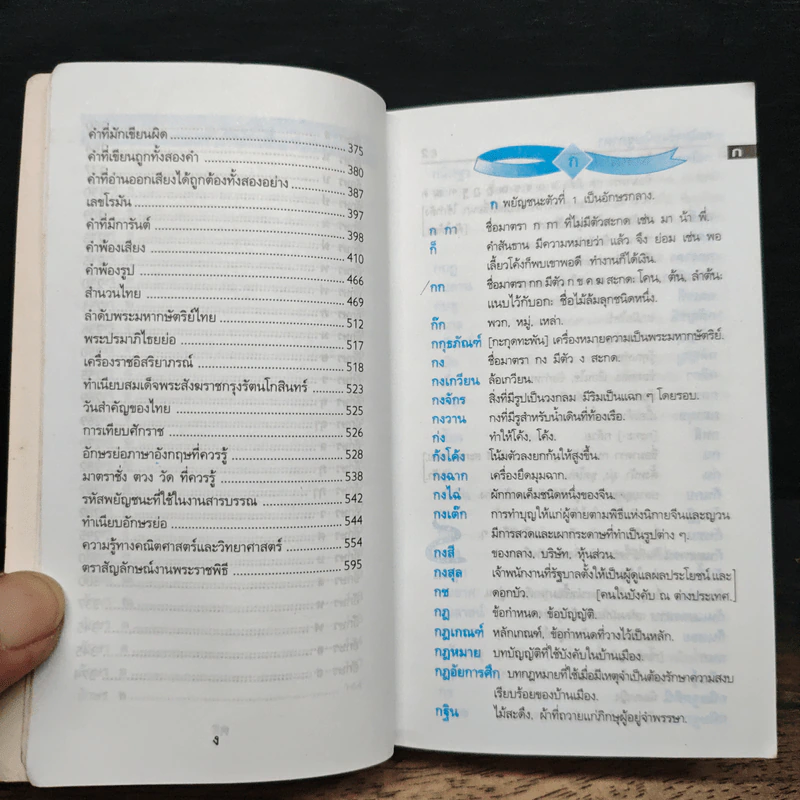 คำที่มักเขียนผิด 375
คำที่เขียนถูกทั้งสองคำ 380
คำที่อ่านออกเสียงได้ถูกต้องทั้งสองอย่าง 387
เลขโรมัน 397
คำที่มีการันต์ 398
คำพ้องเสียง 410
คำพ้องรูป 466
สำนวนไทย 469
ลำดับพระมหากษัตริย์ไทย 512
พระปรมาภิไธยย่อ 517
เครื่องราชอิสริยาภรณ์ 518
ทำเนียบสมเด็จพระสังฆราชกรุงรัตนโกสินทร์ 523
วันสำคัญของไทย 525
การเทียบศักราช 526
อักษรย่อภาษาอังกฤษที่ควรรู้ 528
มาตราชั่ง ตวง วัด ที่ควรรู้ 538
รหัสพยัญชนะที่ใช้ในงานสารบรรณ 542
ทำเนียบอักษรย่อ 544
ความรู้ทางคณิตศาสตร์และวิทยาศาสตร์ 554
ตราสัญลักษณ์งานพระราชพิธี 595
ง
ก
ก
ก พยัญชนะตัวที่ 1 เป็นอักษรกลาง.
ก กา ชื่อมาตรา ก กา ที่ไม่มีตัวสะกด เช่น มา น้า พี่.
ก็ คำสันธาน มีความหมายว่า แล้ว จึง ย่อม เช่น พอ
เลี้ยวโค้งก็พบเขาพอดี ทำงานก็ได้เงิน.
กก ชื่อมาตรา กก มีตัว ก ข ค ฆ สะกด; โคน, ต้น, ลำต้น;
แนบไว้กับอก; ชื่อไม้ล้มลุกชนิดหนึ่ง.
ก๊ก พวก, หมู่, เหล่า.
กกุธภัณฑ์ [กะกุดทะพัน] เครื่องหมายความเป็นพระมหากษัตริย์.
กง ชื่อมาตรา กง มีตัว ง สะกด.
กงเกวียน ล้อเกวียน.
กงจักร สิ่งที่มีรูปเป็นวงกลม มีริมเป็นแฉก ๆ โดยรอบ.
กงวาน กงที่มีรูสำหรับน้ำเดินที่ท้องเรือ.
ก่ง ทำให้โค้ง, โค้ง.
ก้งโค้ง โน้มตัวลงยกก้นให้สูงขึ้น.
กงฉาก เครื่องยึดมุมฉาก.
กงไฉ่ ผักกาดเค็มชนิดหนึ่งของจีน.
กงเต๊ก การทำบุญให้แก่ผู้ตายตามพิธีแห่งนิกายจีนและญวน
มีการสวดและเผากระดาษที่ทำเป็นรูปต่าง ๆ.
กงสี ของกลาง, บริษัท, หุ้นส่วน.
กงสุล เจ้าพนักงานที่รัฐบาลตั้งให้เป็นผู้ดูแลผลประโยชน์ และ
กช ดอกบัว. [คนในบังคับ ณ ต่างประเทศ.
กฎ ข้อกำหนด, ข้อบัญญัติ.
กฎเกณฑ์ หลักเกณฑ์, ข้อกำหนดที่วางไว้เป็นหลัก.
กฎหมาย บทบัญญัติที่ใช้บังคับในบ้านเมือง.
กฎอัยการศึก บทกฎหมายที่ใช้เมื่อมีเหตุจำเป็นต้องรักษาความสงบ
เรียบร้อยของบ้านเมือง.
กฐิน ไม้สะดึง, ผ้าที่ถวายแก่ภิกษุผู้อยู่จำพรรษา.